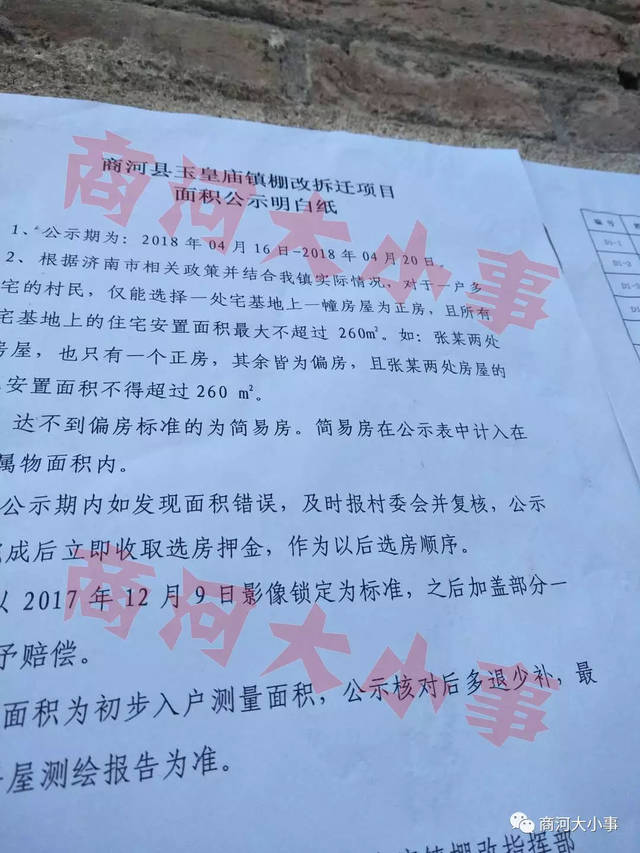 商河县玉皇庙镇棚改拆迁项目
面积公示明白纸
1、公示期为：2018 年 04 月 16 日-2018 年 04 月 20 日。
2、根据济南市相关政策并结合我镇实际情况，对于一户多
宅的村民，仅能选择一处宅基地上一幢房屋为正房，且所有
宅基地上的住宅安置面积最大不超过 260㎡。如：张某两处
房屋，也只有一个正房，其余皆为偏房，且张某两处房屋的
安置面积不得超过 260 ㎡。
达不到偏房标准的为简易房。简易房在公示表中计入在
属物面积内。
公示期内如发现面积错误，及时报村委会并复核，公示
完成后立即收取选房押金，作为以后选房顺序。
以 2017 年 12 月 9 日影像锁定为标准，之后加盖部分一
予赔偿。
面积为初步入户测量面积，公示核对后多退少补，最
屋测绘报告为准。
镇棚改指挥部
编号
D1-1
D1-2
D1-3
商河大小事
商河大小事
商河大小事